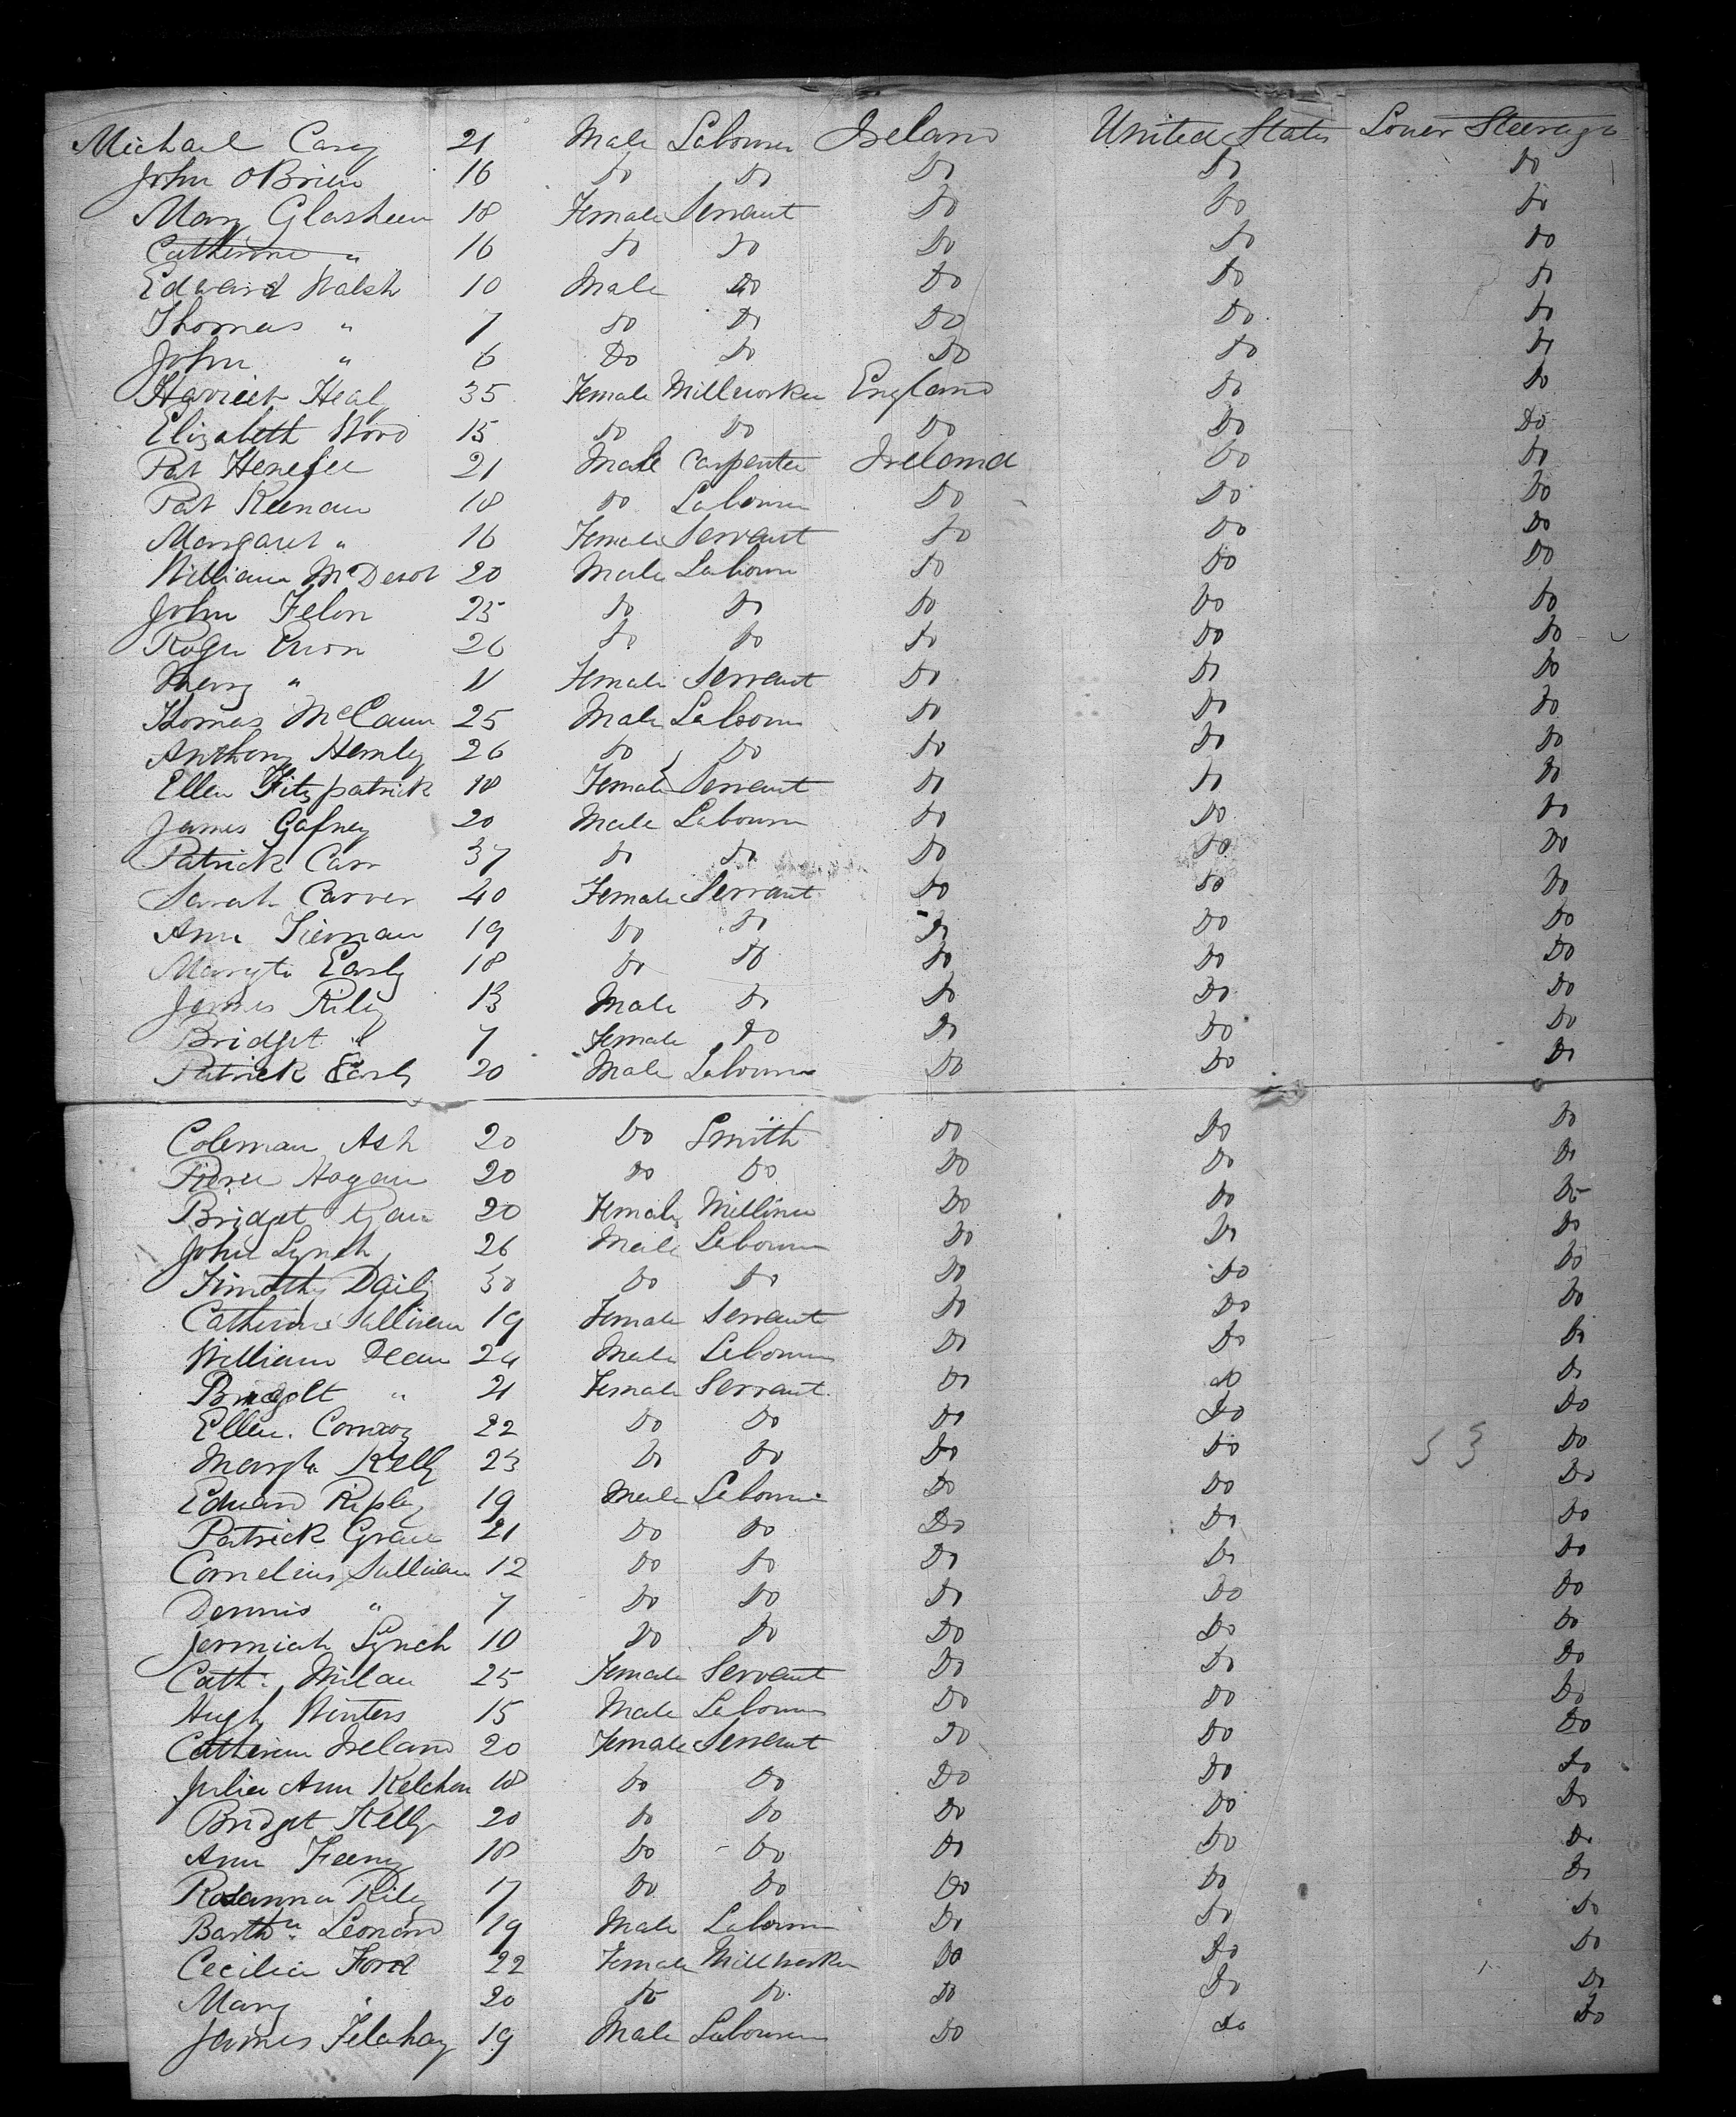 Michael Carey 21 Male Labourer Ireland United States Lower Steerage
John OBrien 16 Do Do Do Do Do
Mary Glasheen 18 Female Servant Do Do Do
Catherine " 16 Do Do Do Do Do
Edward Walsh 10 Male Do Do Do Do
Thomas " 7 Do Do Do Do Do
John " 6 Do Do Do Do Do
Harriet Heal 35 Female Millworker England Do Do
Elizabeth Word 15 Do Do Do Do Do
Pat Henefee 21 Male Carpenter Ireland Do Do
Pat Keenan 18 Do Labourer Do Do Do
Margaret " 16 Female Servant Do Do Do
William McDerot 20 Male Labourer Do Do Do
John Felon 25 Do Do Do Do Do
Roger 26 Do Do Do Do Do
Mary " 11 Female Servant Do Do Do
Thomas McCann 25 Male Labourer Do Do Do
Anthony Hemley 26 Do Do Do Do Do
Ellen Fitzpatrick 18 Female Servant Do Do Do
James Gafney 20 Male Labourer Do Do Do
Patrick Carr 37 Do Do Do Do Do
Sarah Carver 40 Female Servant Do Do Do
Ann Tiernan 19 Do Do Do Do Do
Margta Early 18 Do Do Do Do Do
James Riley 13 Male Do Do Do Do
Bridget " 7 Female Do Do Do Do
Patrick Early 20 Male Labourer Do Do Do
Coleman Ash 20 Do Smith Do Do Do
Pierce Hogan 20 Do Do Do Do Do
Bridget Ryan 20 Female Milliner Do Do Do
John Lynch 26 Male Labourer Do Do Do
Timothy Daily 30 Do Do Do Do Do
Catherine Sullivan 19 Female Servant Do Do Do
William Dean 24 Male Labourer Do Do Do
Bridget " 21 Female Servant Do Do Do
Ellen Conroy 22 Do Do Do Do Do
Margta Kelly 23 Do Do Do Do 53 Do
Edward Ripley 19 Male Labourer Do Do Do
Patrick Grace 21 Do Do Do Do Do
Cornelius Sullivan 12 Do Do Do Do Do
Dennis " 7 Do Do Do Do Do
Jermiah Lynch 10 Do Do Do Do Do
Cath: Milan 25 Female Servant Do Do Do
Hugh Winters 15 Male Labourer Do Do Do
Catherine Ireland 20 Female Servant Do Do Do
Julia Ann Kelchen 18 Do Do Do Do Do
Bridget Kelly 20 Do Do Do Do Do
Ann Feeny 18 Do Do Do Do Do
Rosanna Riley 17 Do Do Do Do Do
Barthw Leonard 19 Male Labourer Do Do Do
Cecilia Ford 22 Female Millworker Do Do Do
Mary " 20 Do Do Do Do Do
James Felahay 19 Male Labourer Do Do Do